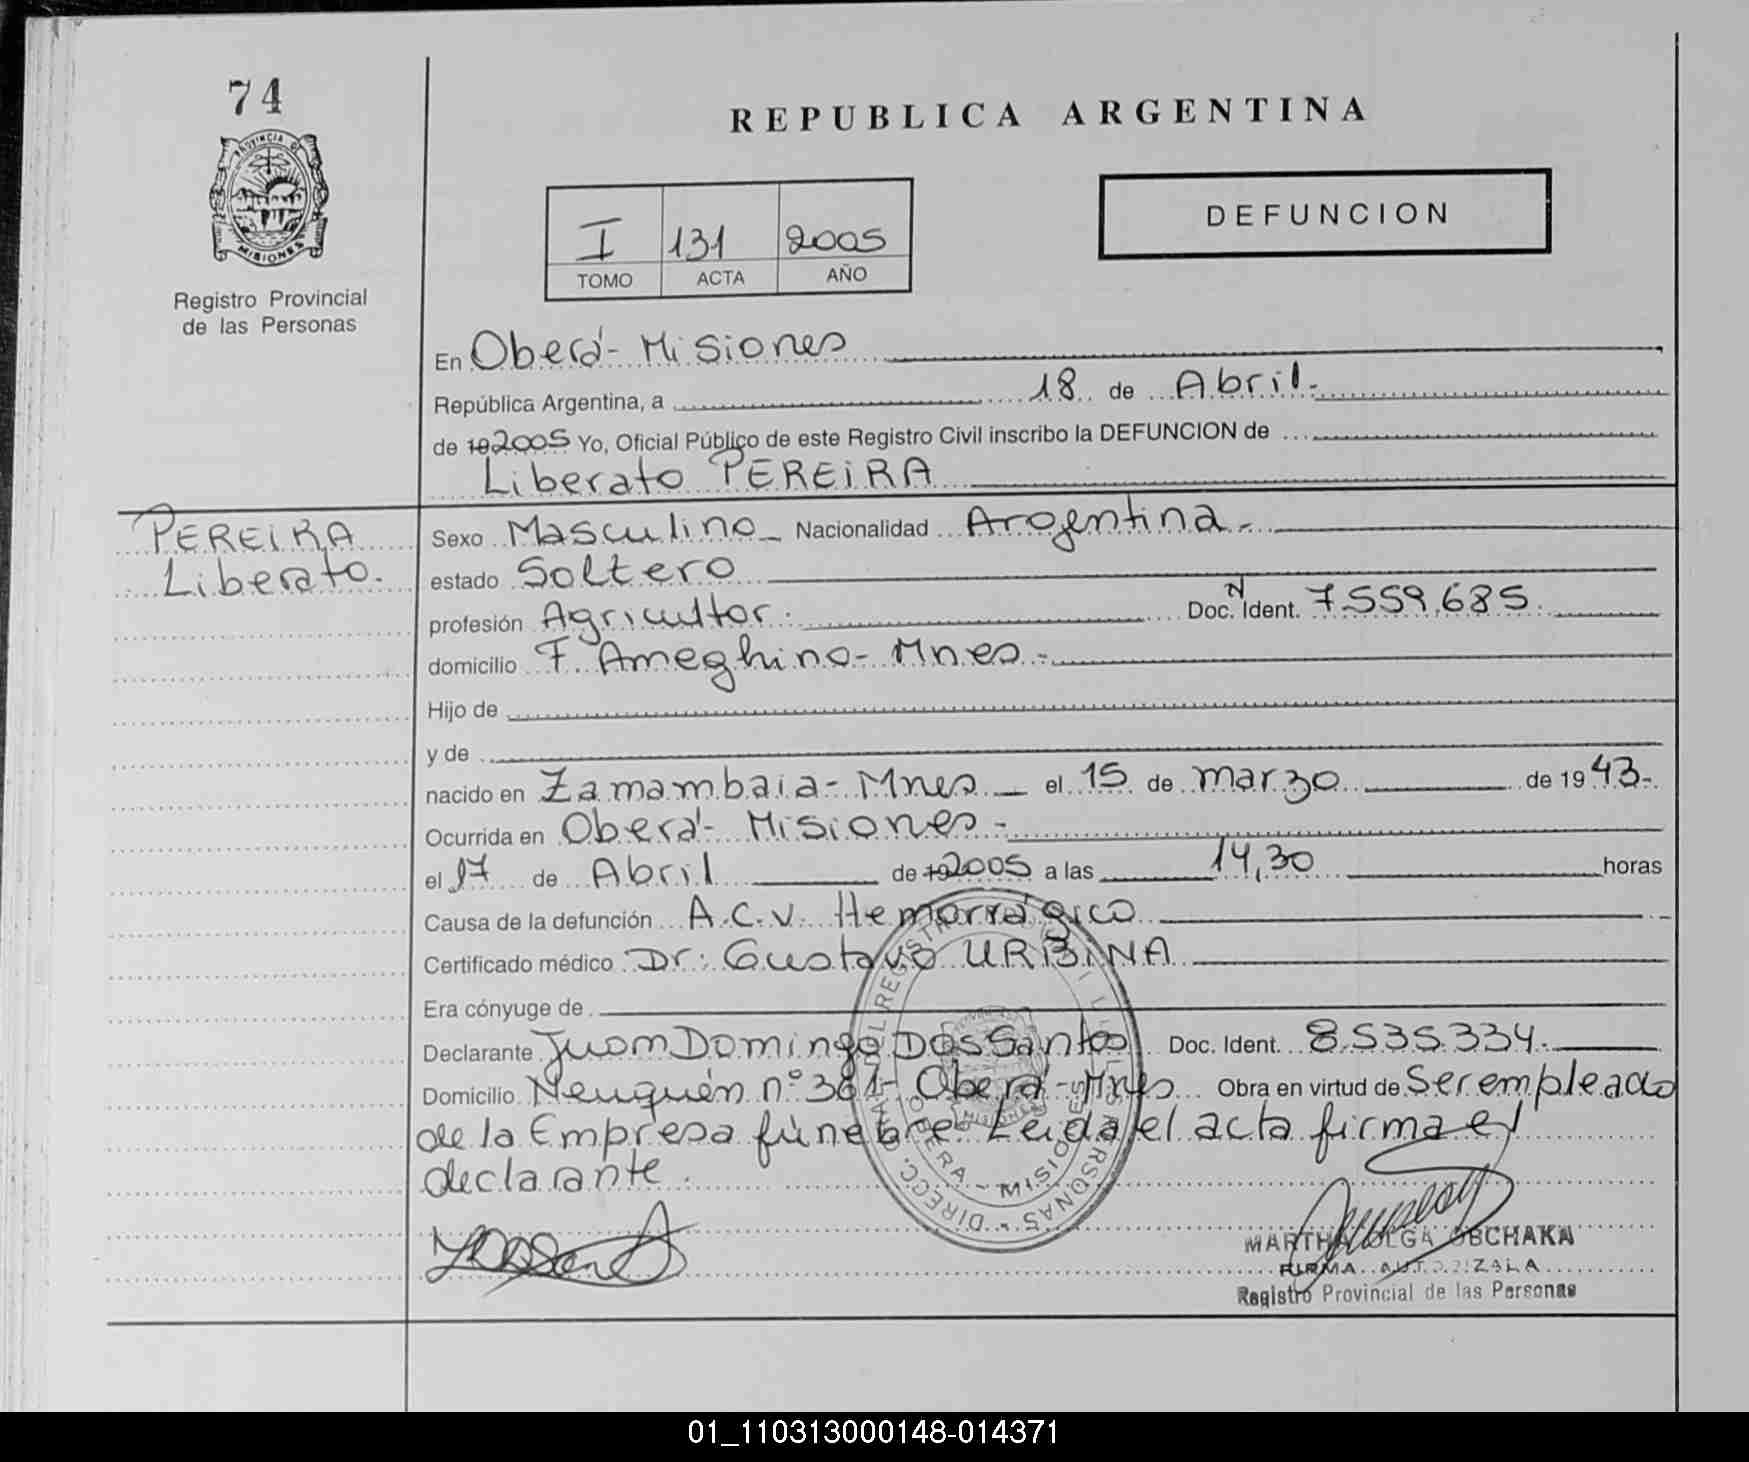 74
PROVINCIA DE
MISIONES
Registro Provincial
de las Personas
REPUBLICA ARGENTINA
I 131 2005
TOMO ACTA AÑO
DEFUNCION
En Oberá - Misiones
República Argentina, a 18 de Abril.
de 192005 Yo, Oficial Público de este Registro Civil inscribo la DEFUNCION de
Liberato PEREIRA
PEREIRA
Liberato.
Sexo Masculino Nacionalidad Argentina -
estado Soltero
profesión Agricultor. Doc. N Ident. 7.559.685
domicilio F. Ameghino - Mnes -
Hijo de
y de
nacido en Zamambaia - Mnes el 15 de marzo de 1943-
Ocurrida en Oberá - Misiones -
el 17 de Abril de 192005 a las 14,30 horas
Causa de la defunción A.C.V. Hemorrágico
Certificado médico Dr: Gustavo URBINA
Era cónyuge de
Declarante Juan Domingo Dos Santos Doc. Ident. 8.535.334.
Domicilio Neuquén nº 361 - Oberá - Mnes Obra en virtud de Ser empleado
de la Empresa fúnebre. Leida el acta firma el
declarante.
OBERA - MISIONES
MARTHA OLGA OBCHAKA
FIRMA AUTORIZADA
Registro Provincial de las Personas
01_110313000148-014371